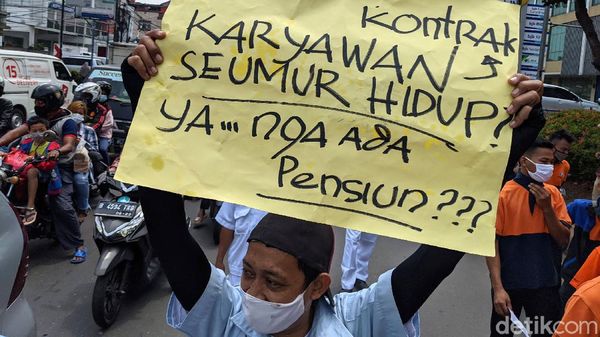 KARYAWAN Kontrak
SEUMUR HIDUP?
YA... Nga ADA
Pensiun???
15
DELIVERY
detikcom